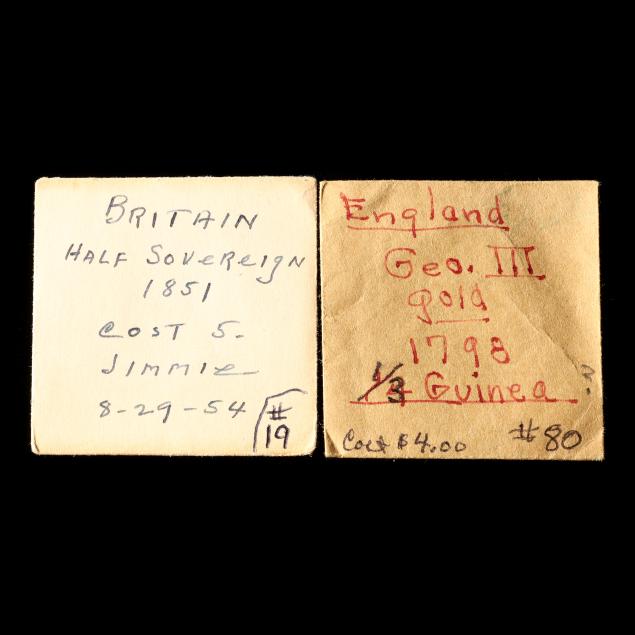 BRITAIN
HALF SOVEREIGN
1851
COST 5.
JIMMIE
8-29-54
#
19
England
Geo. III
gold
1798
1/3 Guinea ?
Cost $4.00 #80